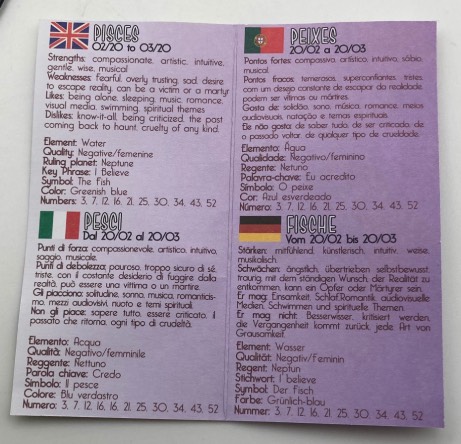 PISCES
02/20 to 03/20
Strengths: compassionate, artistic, intuitive,
gentle, wise, musical
Weaknesses: fearful, overly trusting, sad, desire
to escape reality, can be a victim or a martyr
Likes: being alone, sleeping, music, romance,
visual media, swimming, spiritual themes
Dislikes: know-it-all, being criticized, the past
coming back to haunt, cruelty of any kind.
Element: Water
Quality: Negative/femenine
Ruling planet: Neptune
Key Phrase: I Believe
Symbol: The fish
Color: Greenish blue
Numbers: 3, 7, 12, 16, 21, 25, 30, 34, 43, 52
PEIXES
20/02 a 20/03
Pontos fortes: compassivo, artístico, intuitivo, sábio,
musical.
Pontos fracos: temerosos, superconfiantes, tristes,
com um desejo constante de escapar da realidade,
podem ser vítimas ou mártires.
Gosta de: solidão, sono, música, romance, meios
audiovisuais, natação e temas espirituais.
Ele não gosta: de saber tudo, de ser criticado, de
o passado voltar, de qualquer tipo de crueldade.
Elemento: Água
Qualidade: Negativo/feminino
Regente: Netuno
Palavra-chave: Eu acredito
Símbolo: O peixe
Cor: Azul esverdeado
Número: 3, 7, 12, 16, 21, 25, 30, 34, 43, 52
PESCI
Dal 20/02 al 20/03
Punti di forza: compassionevole, artistico, intuitivo,
saggio, musicale.
Punti di debolezza: pauroso, troppo sicuro di sé,
triste, con il costante desiderio di fuggire dalla
realtà, può essere una vittima o un martire.
Gli piacciono: solitudine, sonno, musica, romanticis-
mo, mezzi audiovisivi, nuoto e temi spirituali.
Non gli piace: sapere tutto, essere criticato, il
passato che ritorna, ogni tipo di crudeltà.
Elemento: Acqua
Qualità: Negativo/femminile
Reggente: Nettuno
Parola chiave: Credo
Simbolo: Il pesce
Colore: Blu verdastro
Numero: 3, 7, 12, 16, 21, 25, 30, 34, 43, 52
FISCHE
Vom 20/02 bis 20/03
Stärken: mitfühlend, künstlerisch, intuitiv, weise,
musikalisch.
Schwächen: ängstlich, übertrieben selbstbewusst,
traurig mit dem ständigen Wunsch der Realität zu
entkommen, kann ein Opfer oder Märtyrer sein.
Er mag: Einsamkeit, Schlaf, Romantik, audiovisuelle
Medien, Schwimmen und spirituelle Themen.
Er mag nicht: Besserwisser, kritisiert werden,
die Vergangenheit kommt zurück, jede Art von
Grausamkeit.
Element: Wasser
Qualität: Negativ/Feminin
Regent: Neptun
Stichwort: I believe
Symbol: Der Fisch
Farbe: Grünlich-blau
Nummer: 3, 7, 12, 16, 21, 25, 30, 34, 43, 52